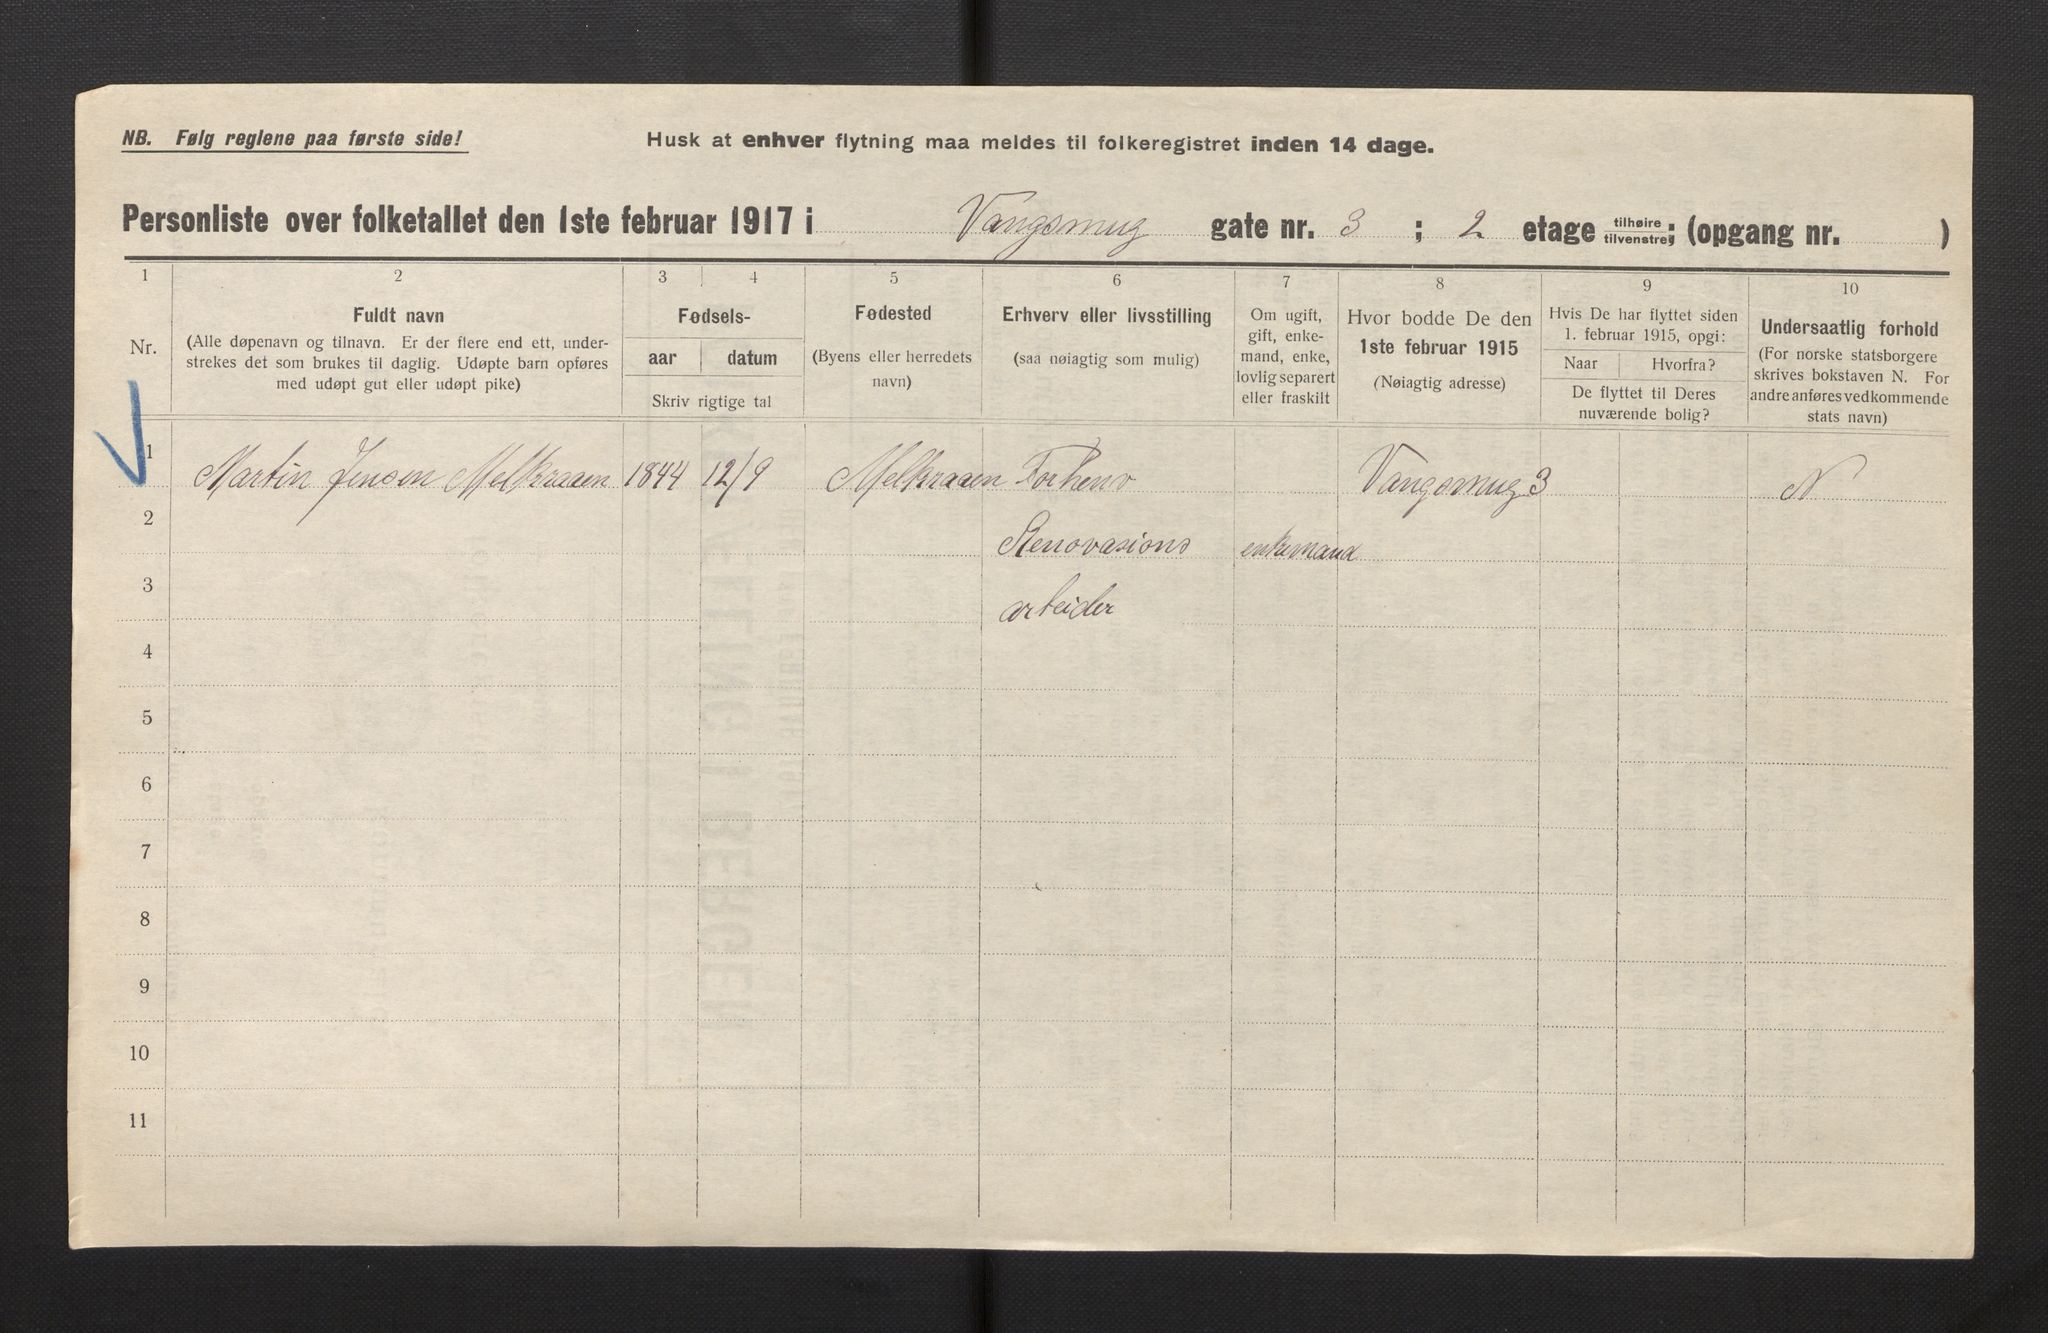 NB. Følg reglene paa første side!
Husk at enhver flytning maa meldes til folkeregistret inden 14 dage.
Personliste over folketallet den 1ste februar 1917 i Vangsmug gate nr. 3 ; 2 etage tilhøire tilvenstre; (opgang nr. )
1 2 3 4 5 6 7 8 9 10
Nr.
Fuldt navn
(Alle døpenavn og tilnavn. Er der flere end ett, under-
strekes det som brukes til daglig. Udøpte barn opføres
med udøpt gut eller udøpt pike)
Fødsels-
aar datum
Skriv rigtige tal
Fødested
(Byens eller herredets
navn)
Erhverv eller livsstilling
(saa nøiagtig som mulig)
Om ugift,
gift, enke-
mand, enke,
lovlig separert
eller fraskilt
Hvor bodde De den
1ste februar 1915
(Nøiagtig adresse)
Hvis De har flyttet siden
1. februar 1915, opgi:
Naar Hvorfra?
De flyttet til Deres
nuværende bolig?
Undersaatlig forhold
(For norske statsborgere
skrives bokstaven N. For
andre anføres vedkommende
stats navn)
1 Martin Jensen Melkraaen 1844 12/9 Melkraaen Forhenv Vangsmug 3 N
2 Renovasions enkemand
3 arbeider
4
5
6
7
8
9
10
11